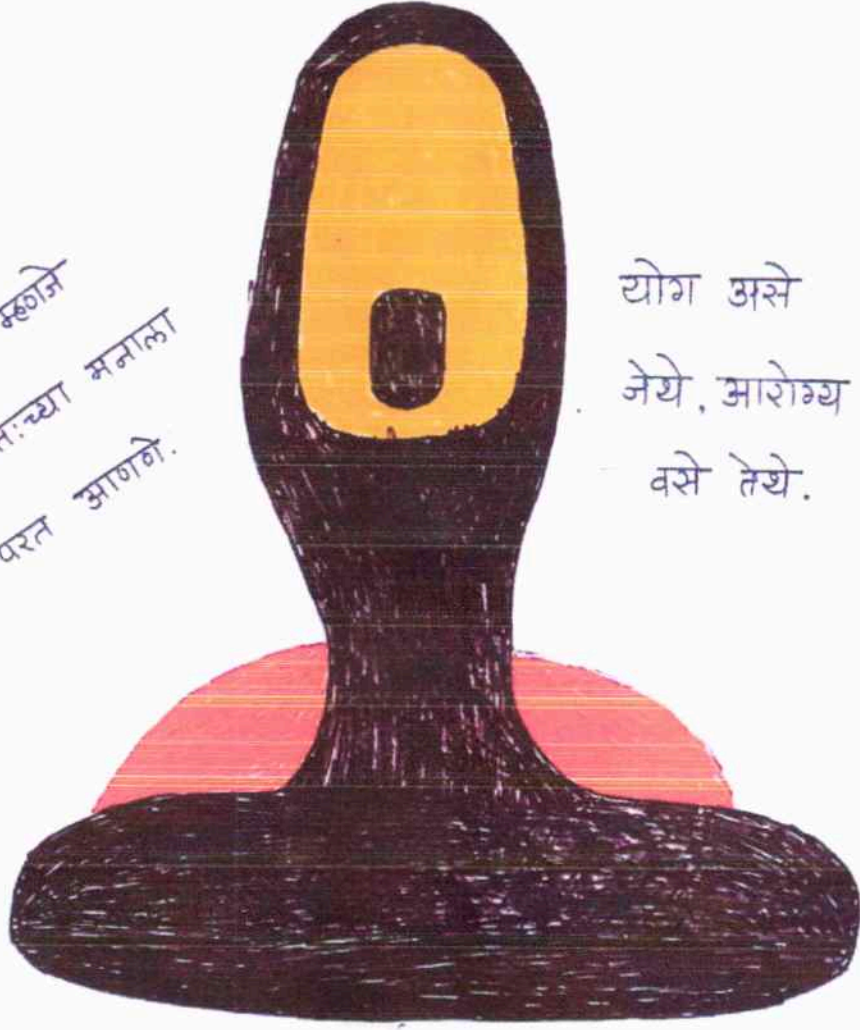 म्हणजे
मनाला
परत आणणे.
योग असे
जेथे, आरोग्य
वसे तेथे.